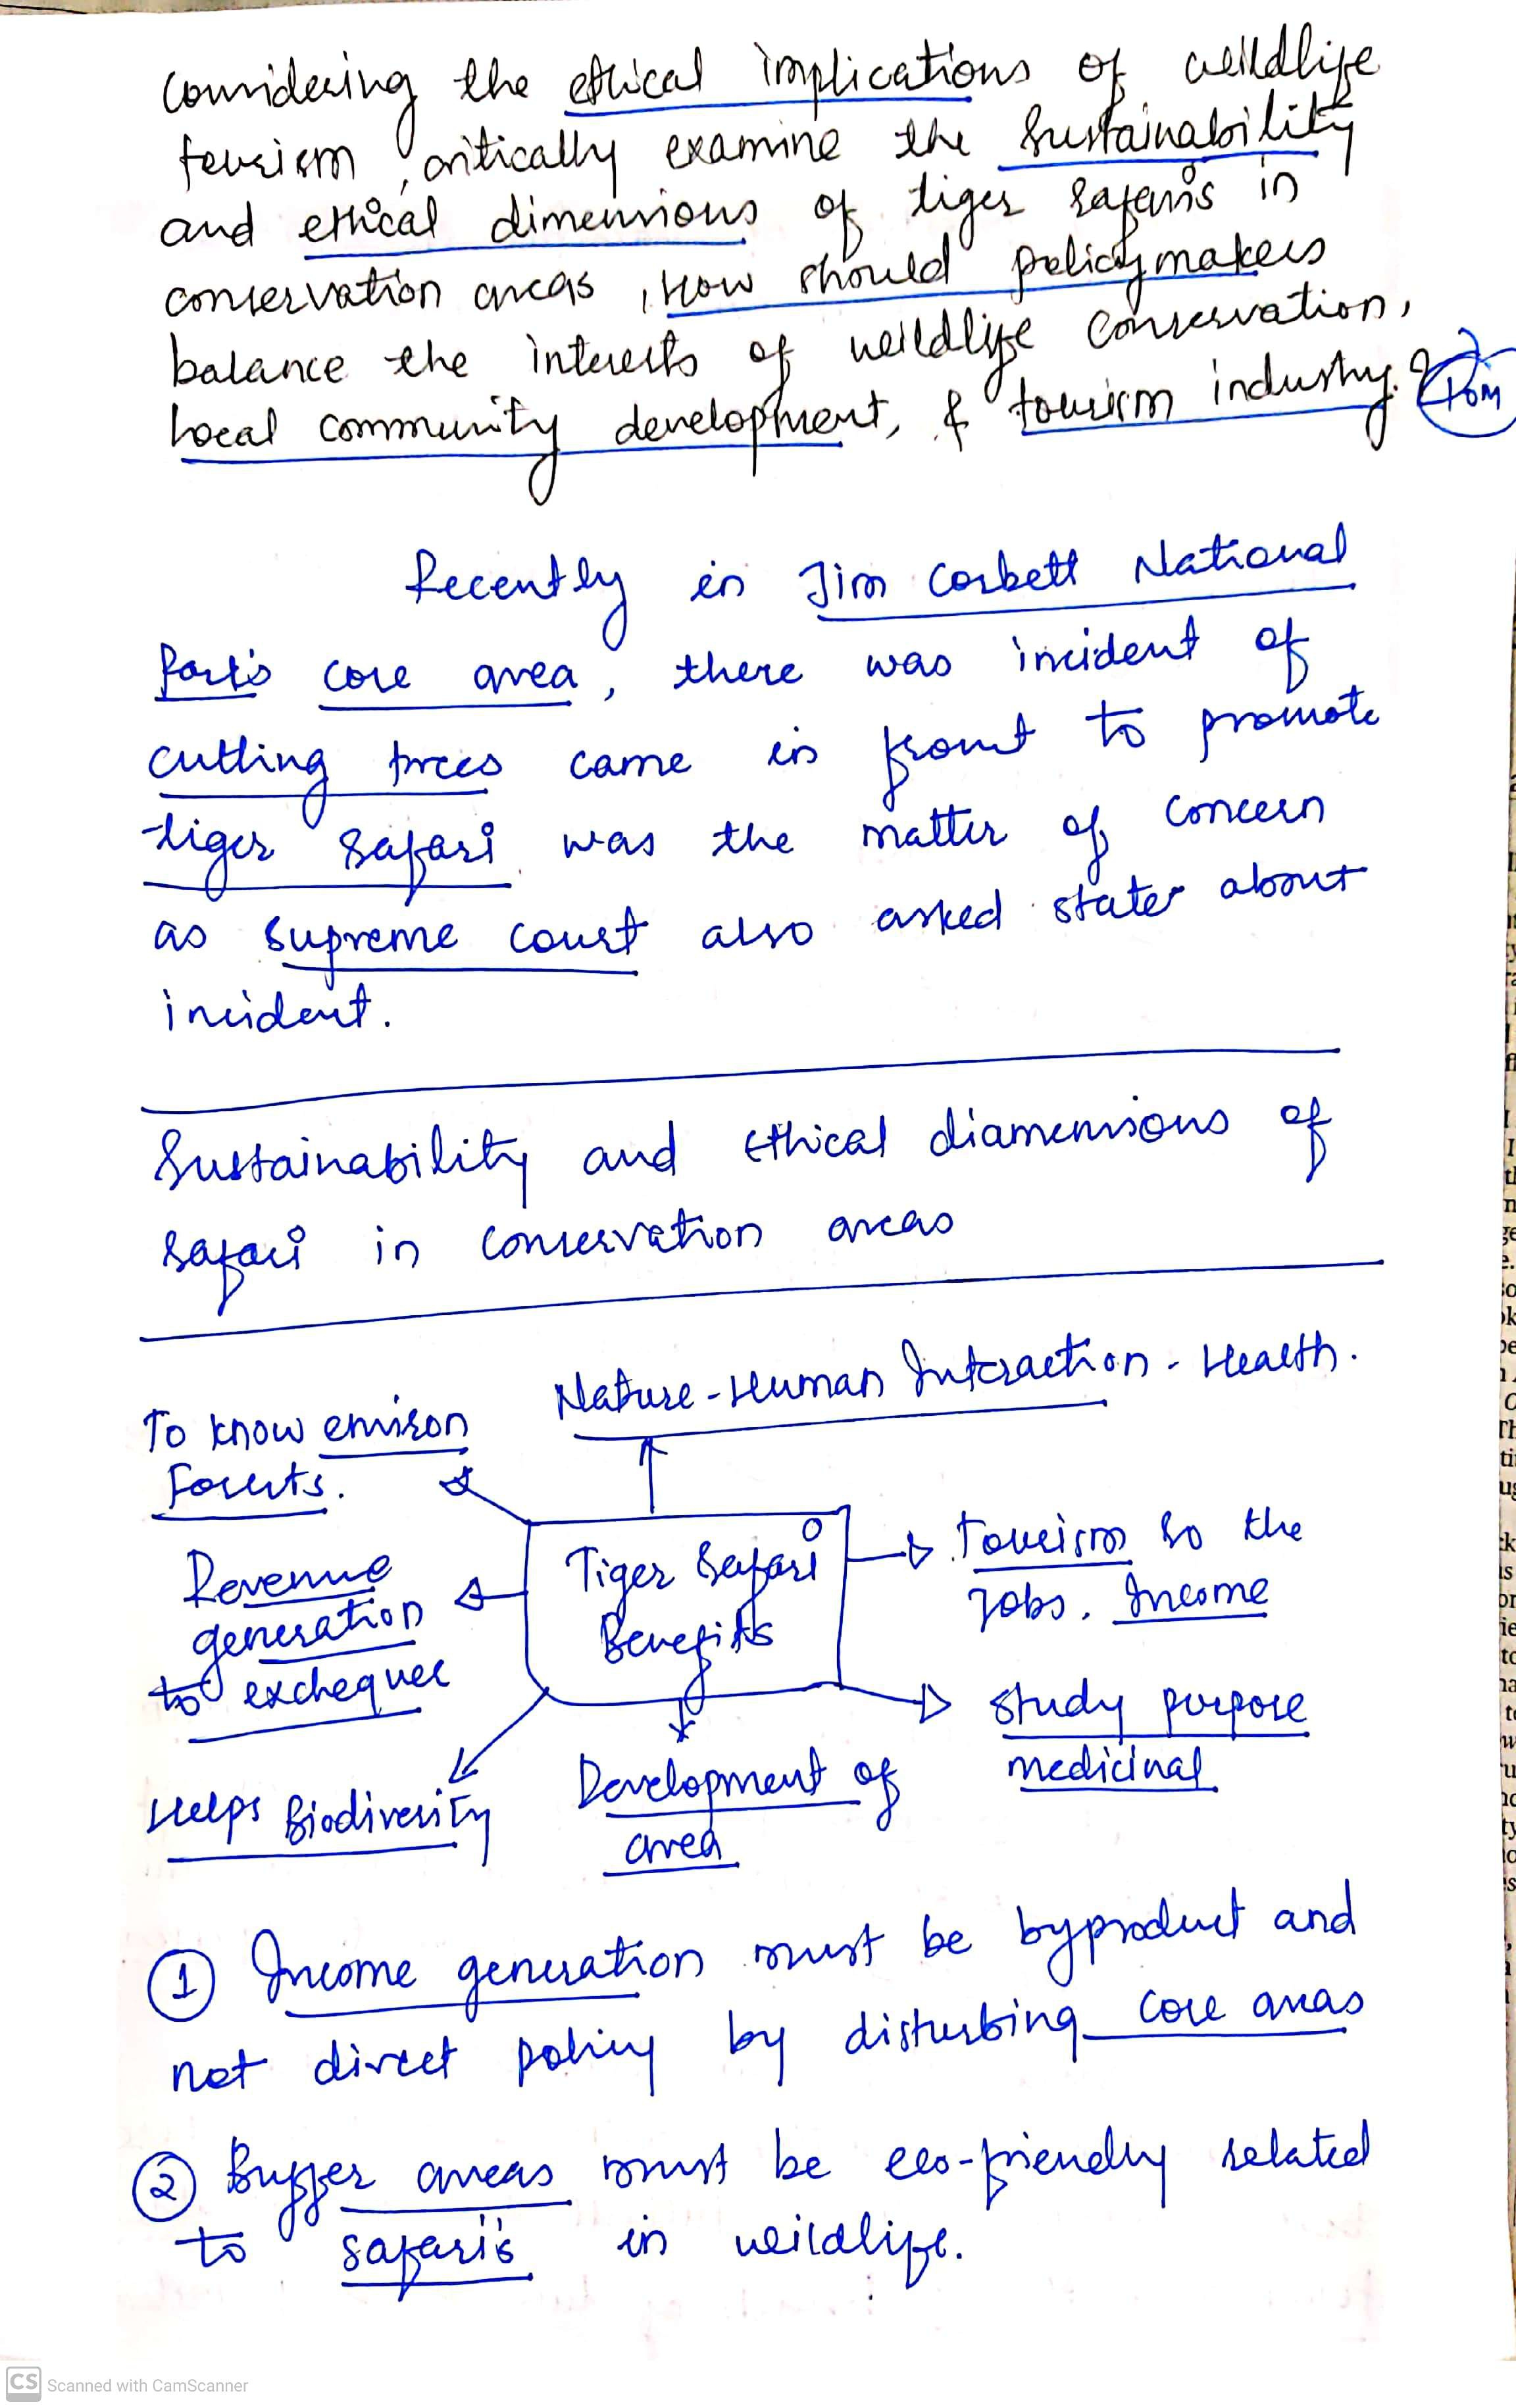 Considering the ethical implications of wildlife
tourism, critically examine the sustainability
and ethical dimensions of tiger safaris in
conservation areas, How should policymakers
balance the interests of wildlife conservation,
local community development, & tourism industry.?
10M
Recently in Jim Corbett National
Park's core area, there was incident of
cutting trees came in front to promote
tiger safari was the matter of concern
as supreme court also asked states about
incident.
Sustainability and ethical diamensions of
safari in conservation areas
Nature-Human Interaction - Health.
To know environ
Forests.
Tiger Safari
Benefits
Tourism so the
Jobs, Income
Revenue
generation
to exchequer
study purpose
medicinal
Helps Biodiversity
Development of
area
① Income generation must be byproduct and
not direct policy by disturbing core areas
② Buffer areas must be eco-friendly related
to safari's in wildlife.
CS Scanned with CamScanner